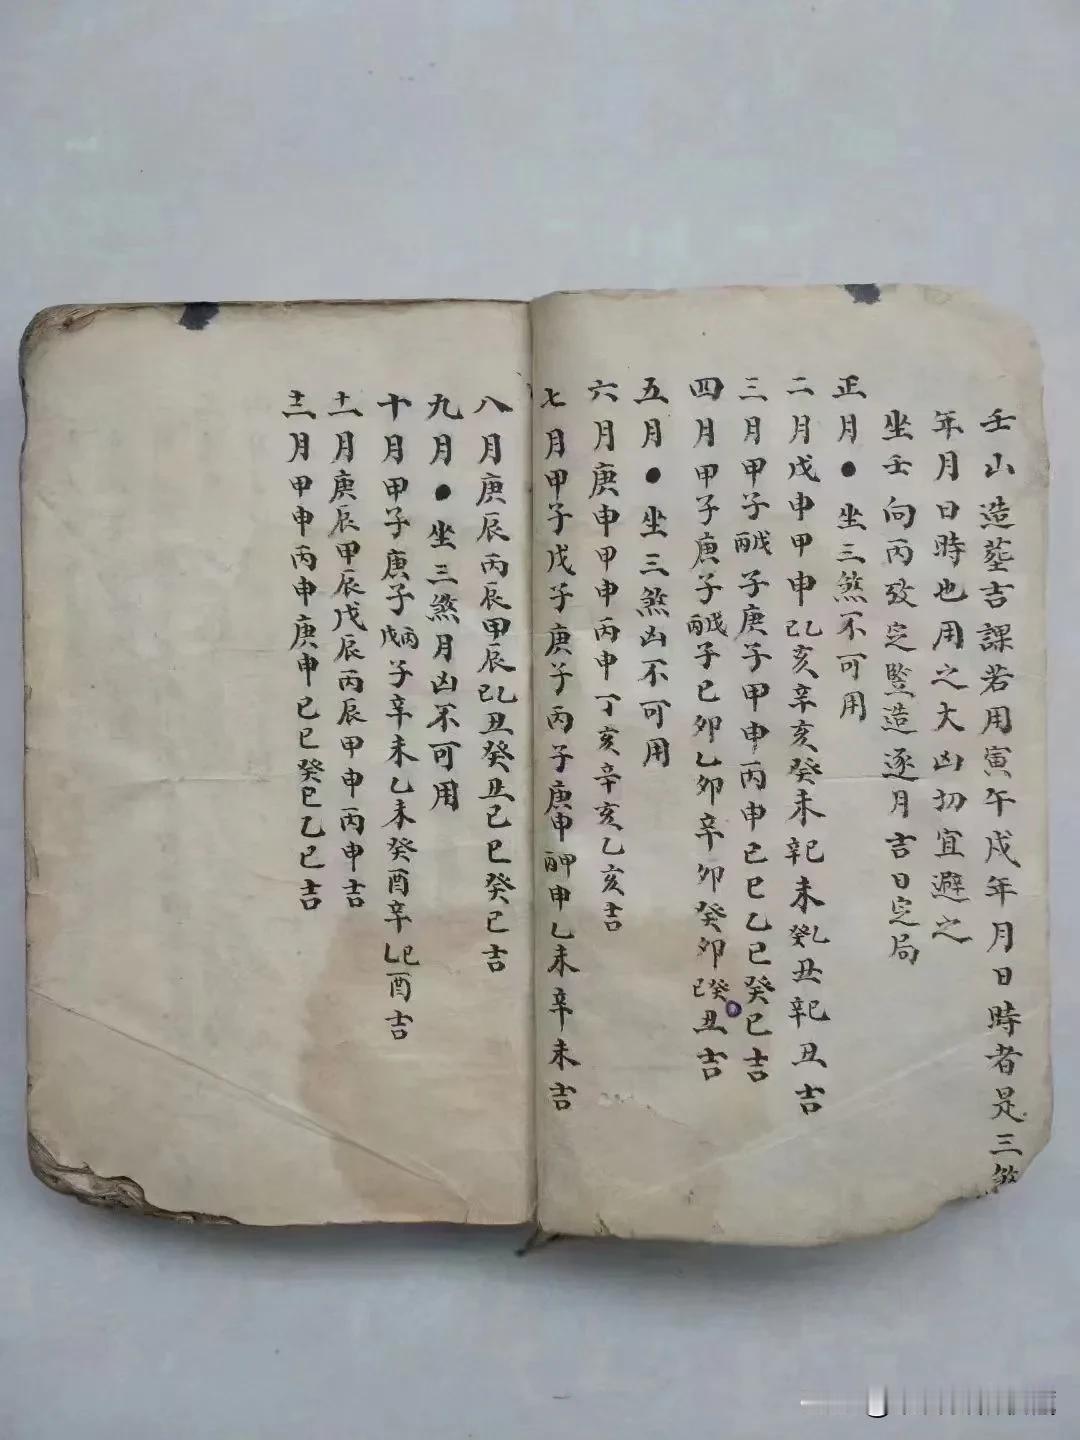 壬山造塟吉課若用寅午戌年月日時者是三煞
年月日時也用之大凶切宜避之
坐壬向丙攷定豎造逐月吉日定局
正月●坐三煞不可用
二月戊申甲申己乙亥辛亥癸未辛己未癸乙丑辛己丑吉
三月甲子丙戊子庚子甲申丙申己巳乙巳癸巳吉
四月甲子庚子丙戊子己卯乙卯辛卯癸卯己癸丑吉
五月●坐三煞凶不可用
六月庚申甲申丙申丁亥辛亥乙亥吉
七月甲子戊子庚子丙子庚申丙甲申乙未辛未吉
八月庚辰丙辰甲辰己乙丑癸丑己巳癸巳吉
九月●坐三煞月凶不可用
十月甲子庚子戊丙子辛未乙未癸酉辛酉乙己酉吉
十一月庚辰甲辰戊辰丙辰甲申丙申吉
十二月甲申丙申庚申己巳癸巳乙巳吉